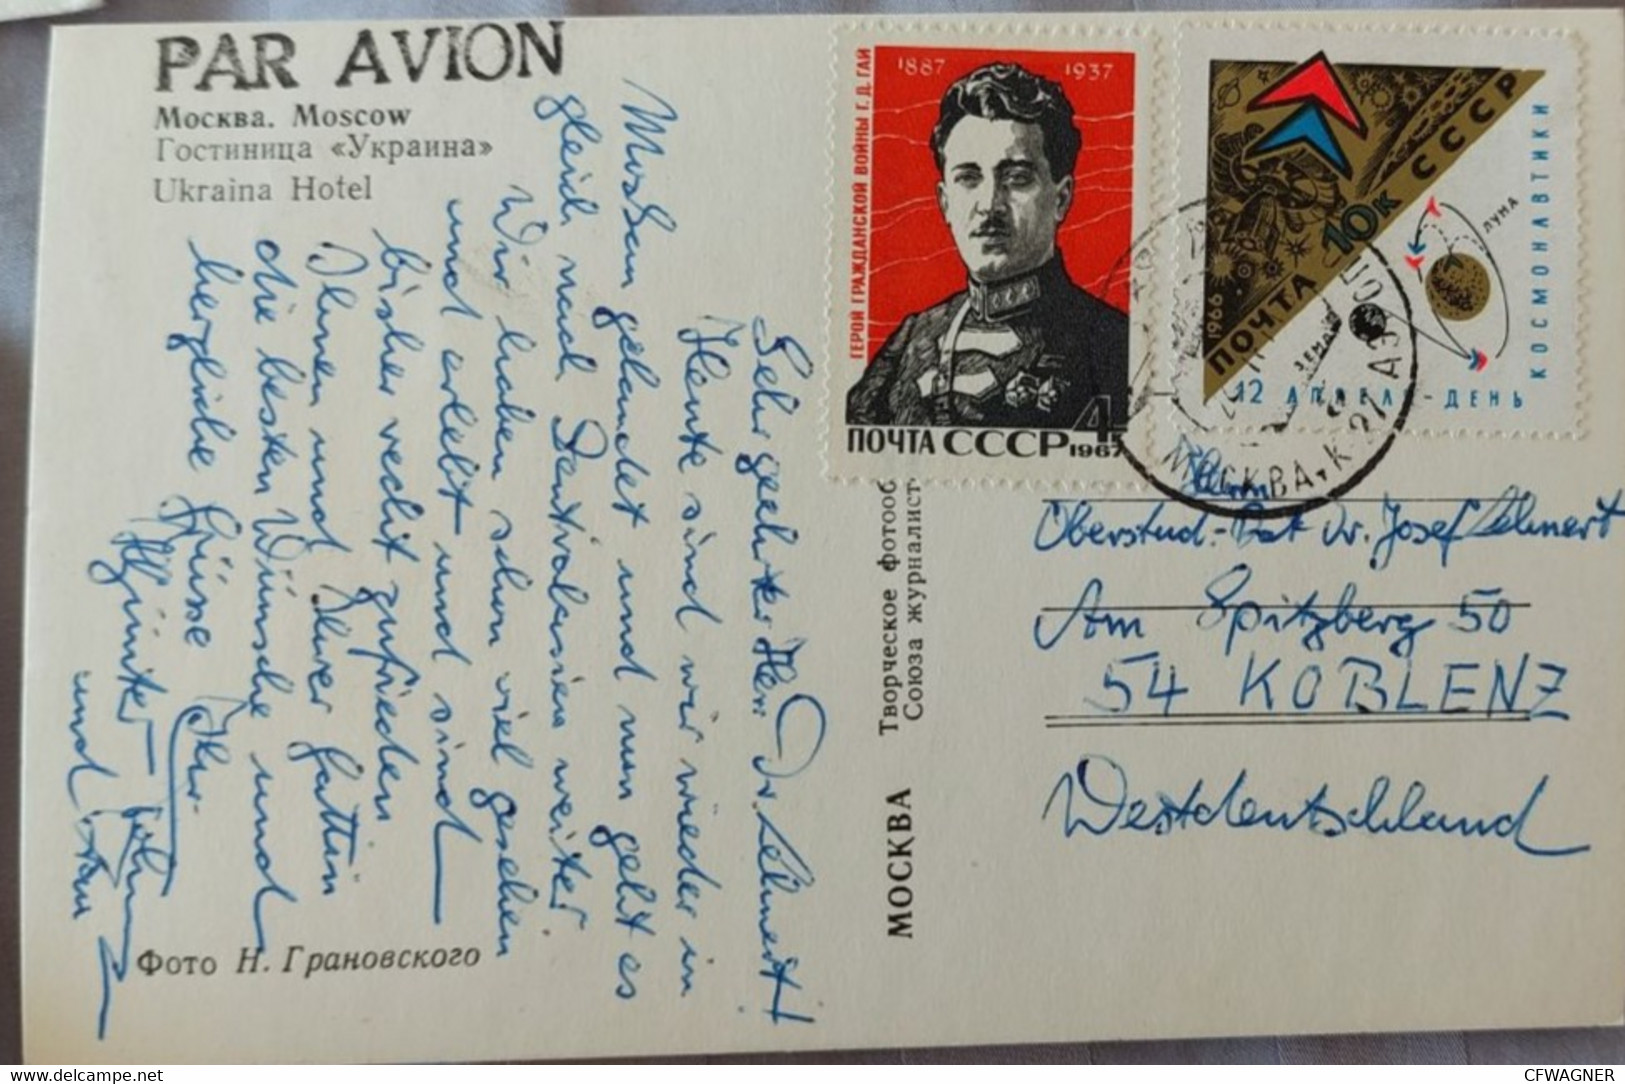 PAR AVION
Москва. Moscow
Гостиница «Украина»
Ukraina Hotel
Sehr geehrter Herr Dr. Lehnert!
Heute sind wir wieder in
Moskau gelandet und nun geht es
gleich nach Zentralasien weiter.
Wir haben schon viel gesehen
und erlebt und sind
bisher recht zufrieden
Ihnen und Ihrer Gattin
die besten Wünsche und
herzliche Grüsse Ihr
H. Günter
und Frau
Фото Н. Грановского
МОСКВА Творческое фотооб
Союза журналист
1887 1937
ГЕРОЙ ГРАЖДАНСКОЙ ВОЙНЫ Г. Д. ГАЙ
4
ПОЧТА СССР 1967
1966 ПОЧТА 10К СССР
ЛУНА
ЗЕМЛЯ
12 АПРЕЛЯ - ДЕНЬ
КОСМОНАВТИКИ
МОСКВА К
Herrn
Oberstud.-Rat Dr. Josef Lehnert
Am Spitzberg 50
54 KOBLENZ
Westdeutschland
CFWAGNER